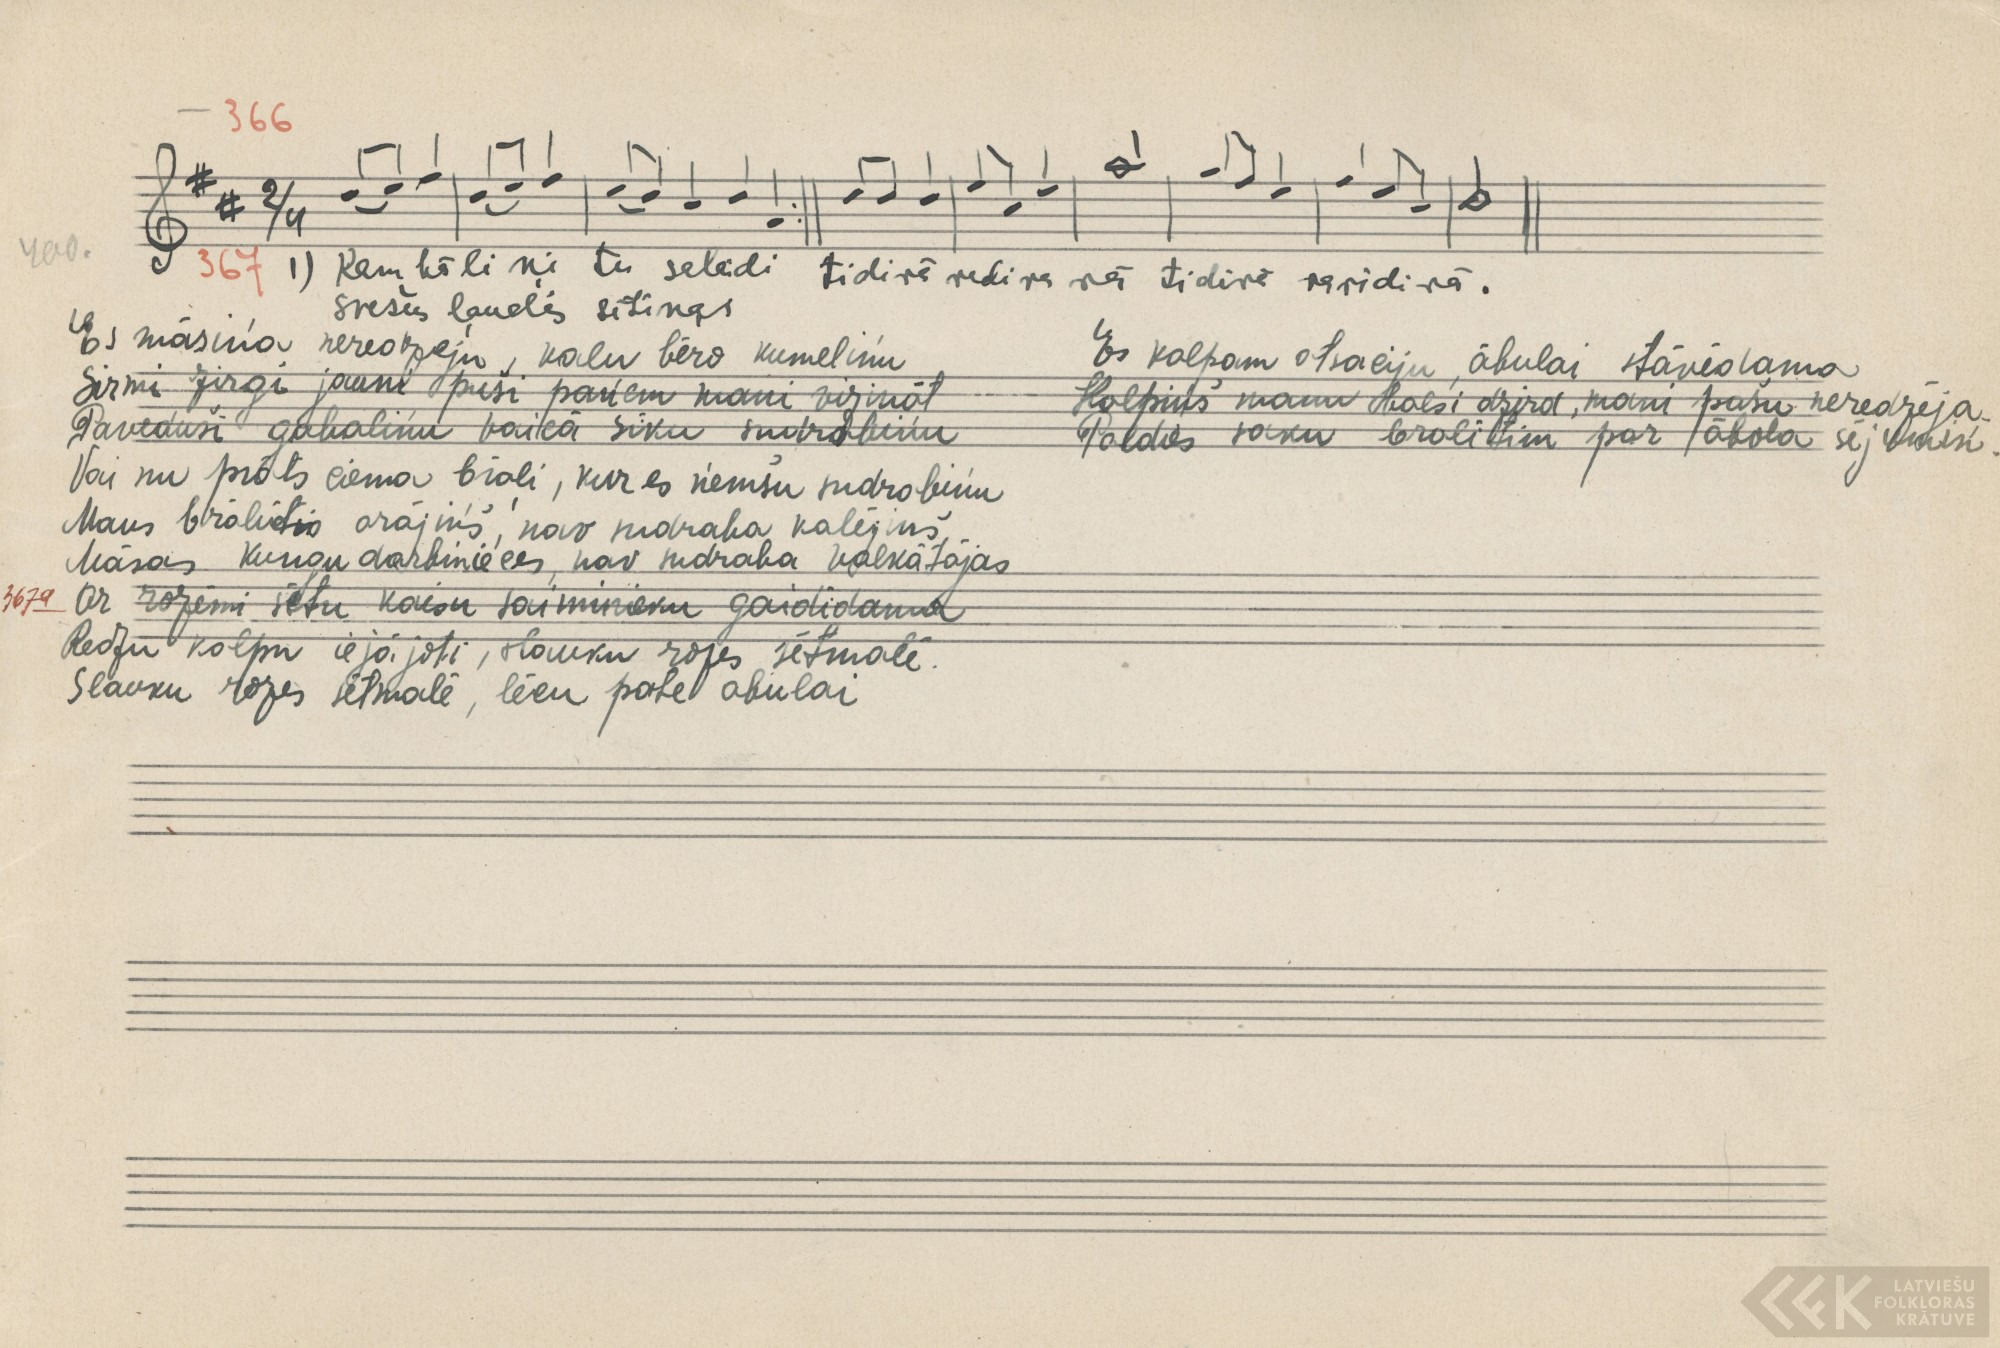 366
2/4
400.
367 1) Kam bāliņi tu salādi tidirā radira rā tidirā raridirā.
svešus ļaudis sētiņas
Es māsiņa neredzēju, kalu bēro kumeliņu
Sirmi zirgi jauni puiši paņem mani vizināt
Paveduši gabaliņu vaicā sīku sudrabiņu
Vai nu prāts ciema brāļi, kur es ņemšu sudrabiņu
Mans brālītis arājiņš, nav sudraba kalējiņš
Māsas kungu darbinieces, nav sudraba valkātājas
367a Ar rozēmi sētu kaisu saiminieku gaidīdama
Redzu kalpu iejājoti, slauku rozes sētmalē.
Slauku rozes sētmalē, lēcu pate abulai
Es kalpam atsacīju, ābulai stāvēdama
Kalpiņš manu balsi dzird, mani pašu neredzēja
Paldies saku brālītim par ābola sējumiņ.
LATVIEŠU
FOLKLORAS
KRĀTUVE